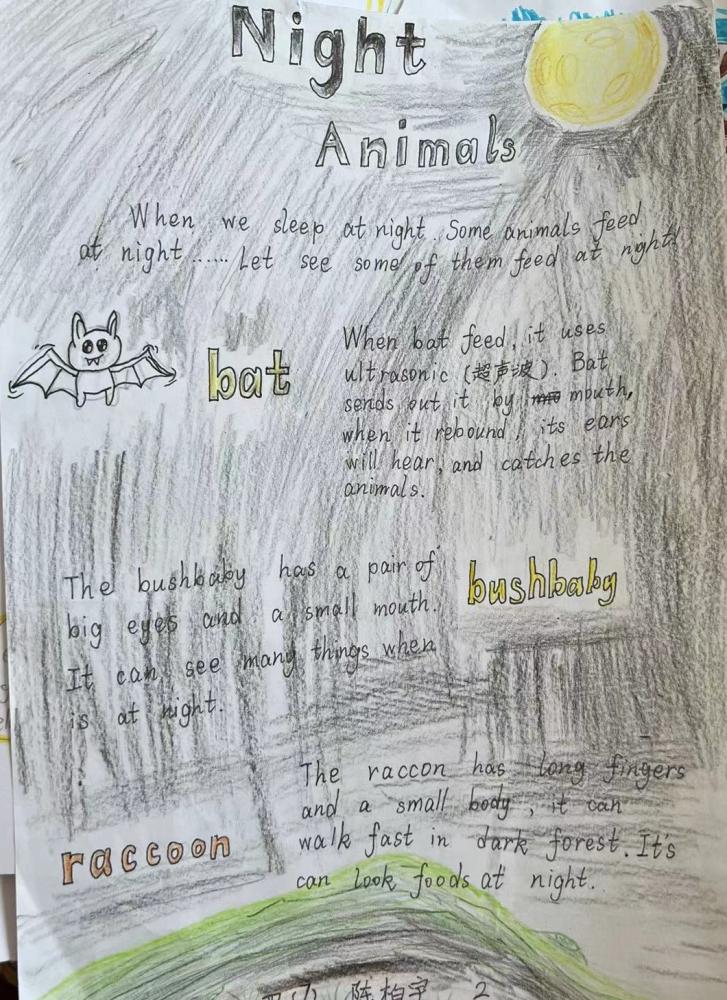 Night
Animals
When we sleep at night. Some animals feed
at night...... Let see some of them feed at night!
bat
When bat feed, it uses
ultrasonic (超声波). Bat
sends out it by mouth,
when it rebound, its ears
will hear, and catches the
animals.
The bushbaby has a pair of
big eyes and a small mouth.
It can see many things when
is at night.
bushbaby
The raccon has long fingers
and a small body, it can
walk fast in dark forest. It's
can look foods at night.
raccoon
陈柏宇 2